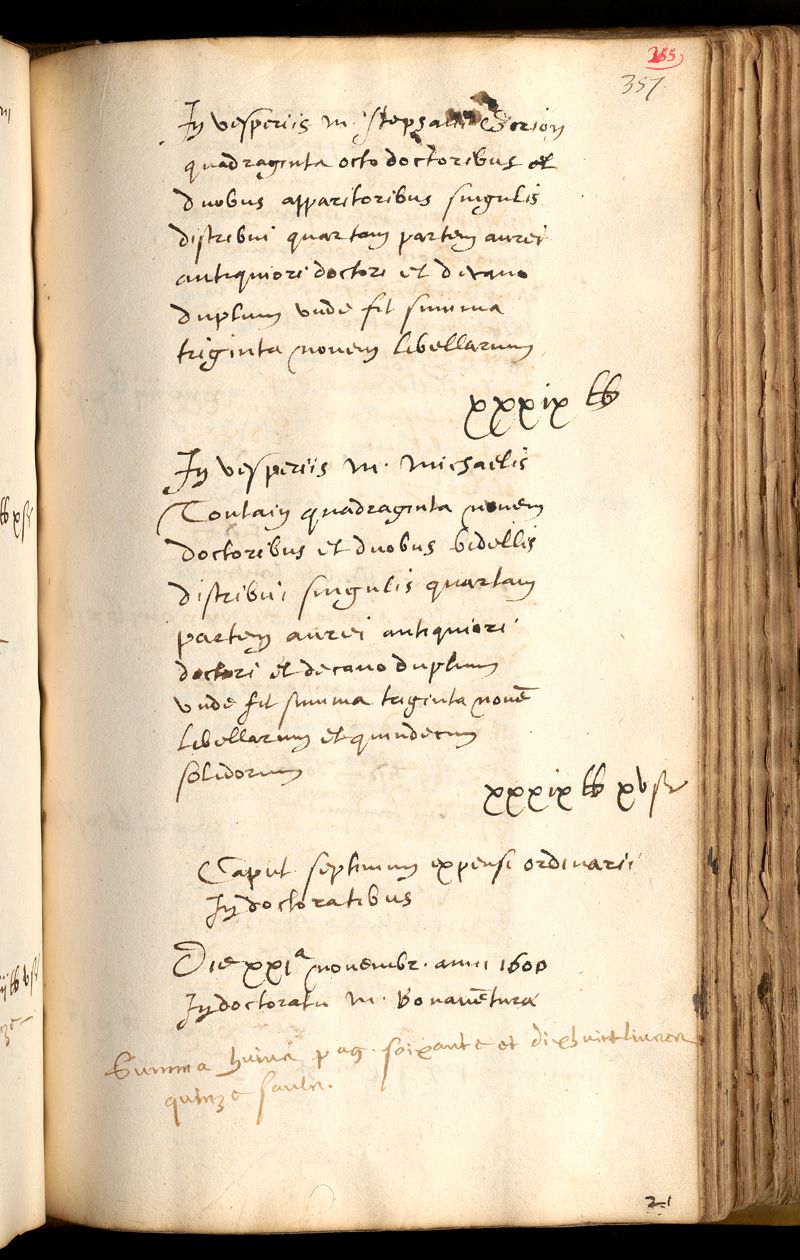 355
357
In vesperiis m. Stephani
quadraginta octo doctoribus et
duobus apparitoribus singulis
distribui quartam partem aurei
antiquiori doctori et decano
duplum unde fit summa
triginta novem libellarum
xxxix ℔
In vesperiis m. Michaelis
Toutain quadraginta novem
doctoribus et duobus bidellis
distribui singulis quartam
partem aurei antiquiori
doctori et decano duplum
unde fit summa triginta novē
libellarum et quindecim
solidorum
xxxix ℔ xv s
Caput septimum expensi ordinarii
In doctoratibus
Die xxiª novembr. anni 1600
In doctoratu m. Bonavētura
Summa huius pag. soixante et dixhuict livres
quinze soulz.
21